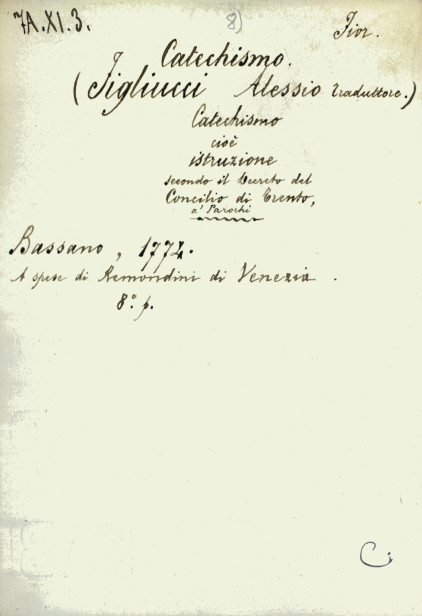 7A.XI.3.
8)
Fior.
Catechismo.
(Figliucci Alessio traduttore.)
Catechismo
cioè
istruzione
secondo il Decreto del
Concilio di Trento,
a' Parochi
Bassano, 1774.
A spese di Remondini di Venezia.
8° p.
C.